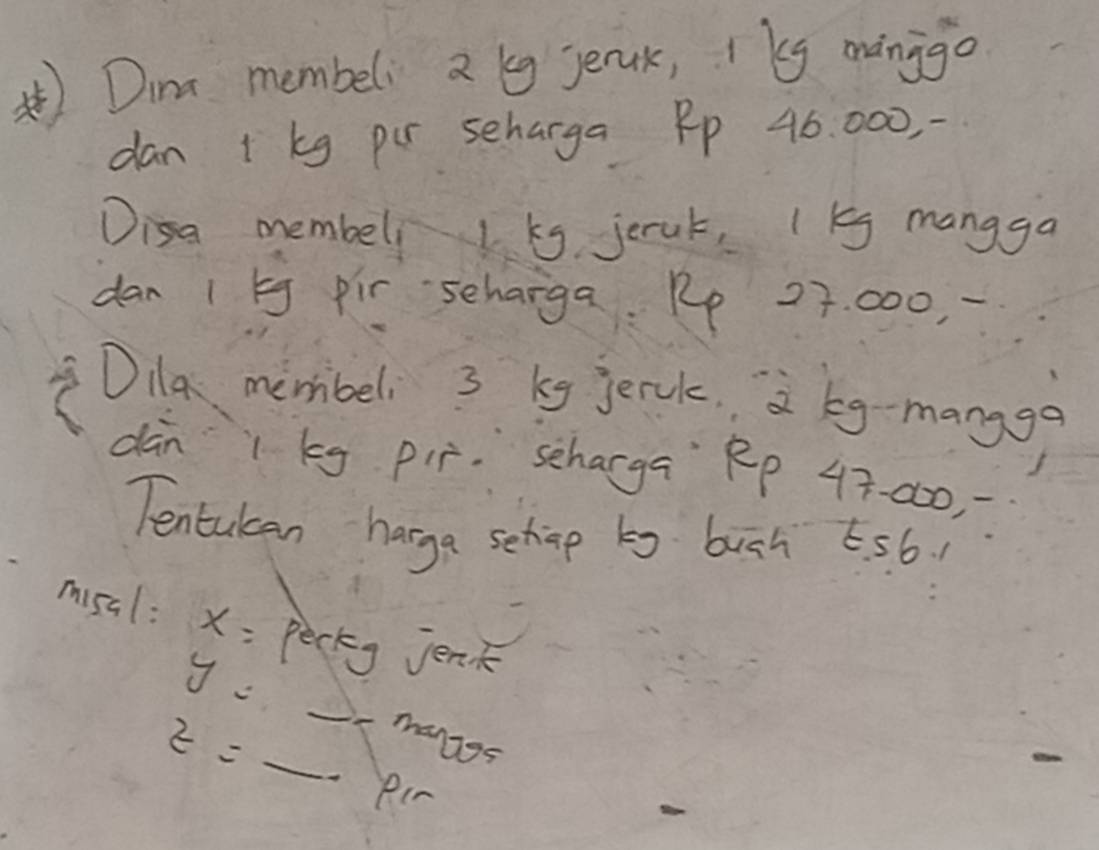 *) Dina membeli 2 kg jeruk, 1 kg manggo
dan 1 kg pir seharga Rp 46.000,-
Disa membeli 1 kg jeruk, 1 kg mangga
dan 1 kg pir seharga Rp 27.000,-
Dila membeli 3 kg jeruk, 2 kg mangga
dan 1 kg pir. seharga Rp 47.000,-
Tentukan harga setiap kg buah tsb!
misal: x = perkg jeruk
y = — mangga
z = — pir